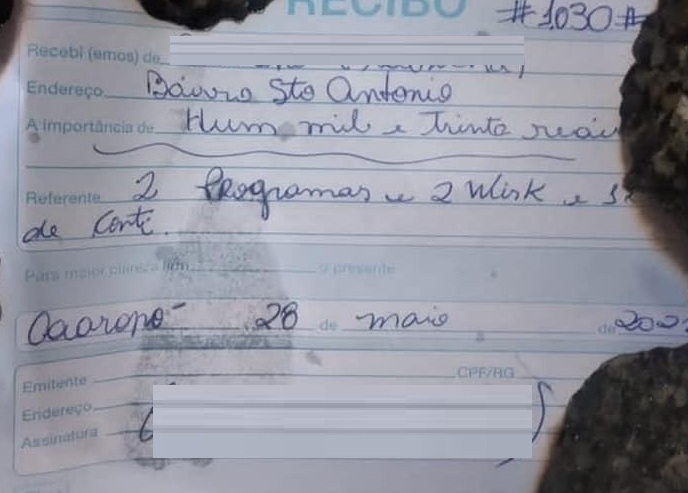 RECIBO #1030#
Recebi (emos) de
Endereço Báirro Sto Antonio
A importância de Hum mil e Trinta reáis
Referente 2 Programas e 2 Wisk e 1
de Conti.
Para maior clareza o presente
28 de maio de 202
Emitente CPF/RG
Endereço
Assinatura